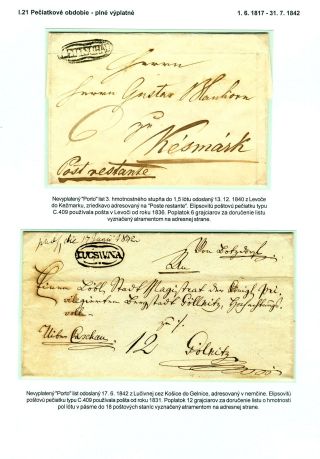 I.21 Pečiatkové obdobie - plné výplatné 1. 6. 1817 - 31. 7. 1842
Herrn
Herrn Gustav
6 Késmárk
Post restante
Nevyplatený "Porto" list 3. hmotnostného stupňa do 1,5 lótu odoslaný 13. 12. 1840 z Levoče
do Kežmarku, zriedkavo adresovaný na "Poste restante". Elipsovitú poštovú pečiatku typu
C.409 používala pošta v Levoči od roku 1836. Poplatok 6 grajciarov za doručenie listu
vyznačený atramentom na adresnej strane.
die 17 Juni 1842
LUCSIVNA
Von
An
Löbl. Stadt Magistrat der Königl.
Bergstadt Göllnitz,
Über Caschau
12 Göllnitz
Nevyplatený "Porto" list odoslaný 17. 6. 1842 z Lučivnej cez Košice do Gelnice, adresovaný v nemčine. Elipsovitú
poštovú pečiatku typu C.409 používala pošta od roku 1831. Poplatok 12 grajciarov za doručenie listu o hmotnosti
pol lótu v pásme do 18 poštových staníc vyznačený atramentom na adresnej strane.